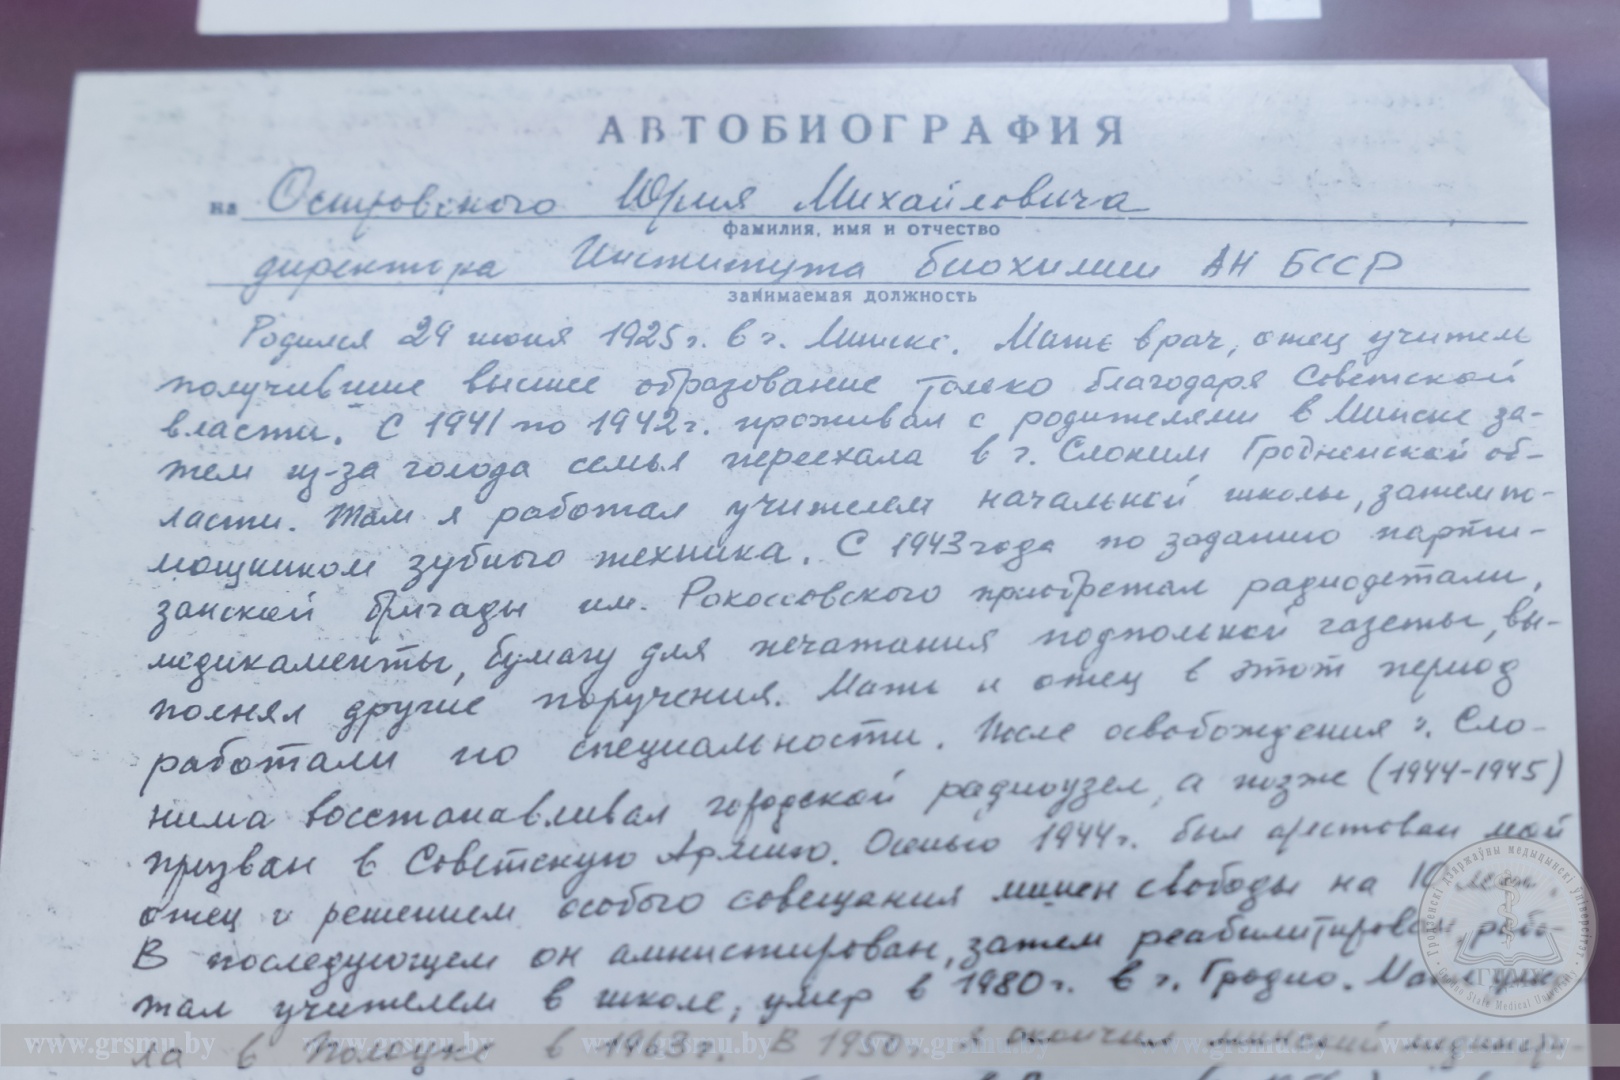 АВТОБИОГРАФИЯ
на Островского Юрия Михайловича
фамилия, имя и отчество
директора Института биохимии АН БССР
занимаемая должность
Родился 29 июня 1925 г. в г. Минске. Мать врач, отец учитель
получившие высшее образование только благодаря Советской
власти. С 1941 по 1942 г. проживал с родителями в Минске за-
тем из-за голода семья переехала в г. Слоним Гродненской об-
ласти. Там я работал учителем начальной школы, затем по-
мощником зубного техника. С 1943 года по заданию парти-
занской бригады им. Рокоссовского приобретал радиодетали,
медикаменты, бумагу для печатания подпольной газеты, вы-
полнял другие поручения. Мать и отец в этот период
работали по специальности. После освобождения г. Сло-
нима восстанавливал городской радиоузел, а позже (1944-1945)
призван в Советскую Армию. Осенью 1944 г. был арестован мой
отец и решением особого совещания лишен свободы на 10 лет.
В последующем он амнистирован, затем реабилитирован, рабо-
тал учителем в школе, умер в 1980 г. в г. Гродно. Мать умер-
ла в Полоцке в 1963 г. В 1950 г. я окончил минский медицин-
www.grsmu.by www.grsmu.by www.grsmu.by www.grsmu.by www.grsmu.by www.grsmu.by
Гродзенскі дзяржаўны медыцынскі ўніверсітэт
Grodno State Medical University